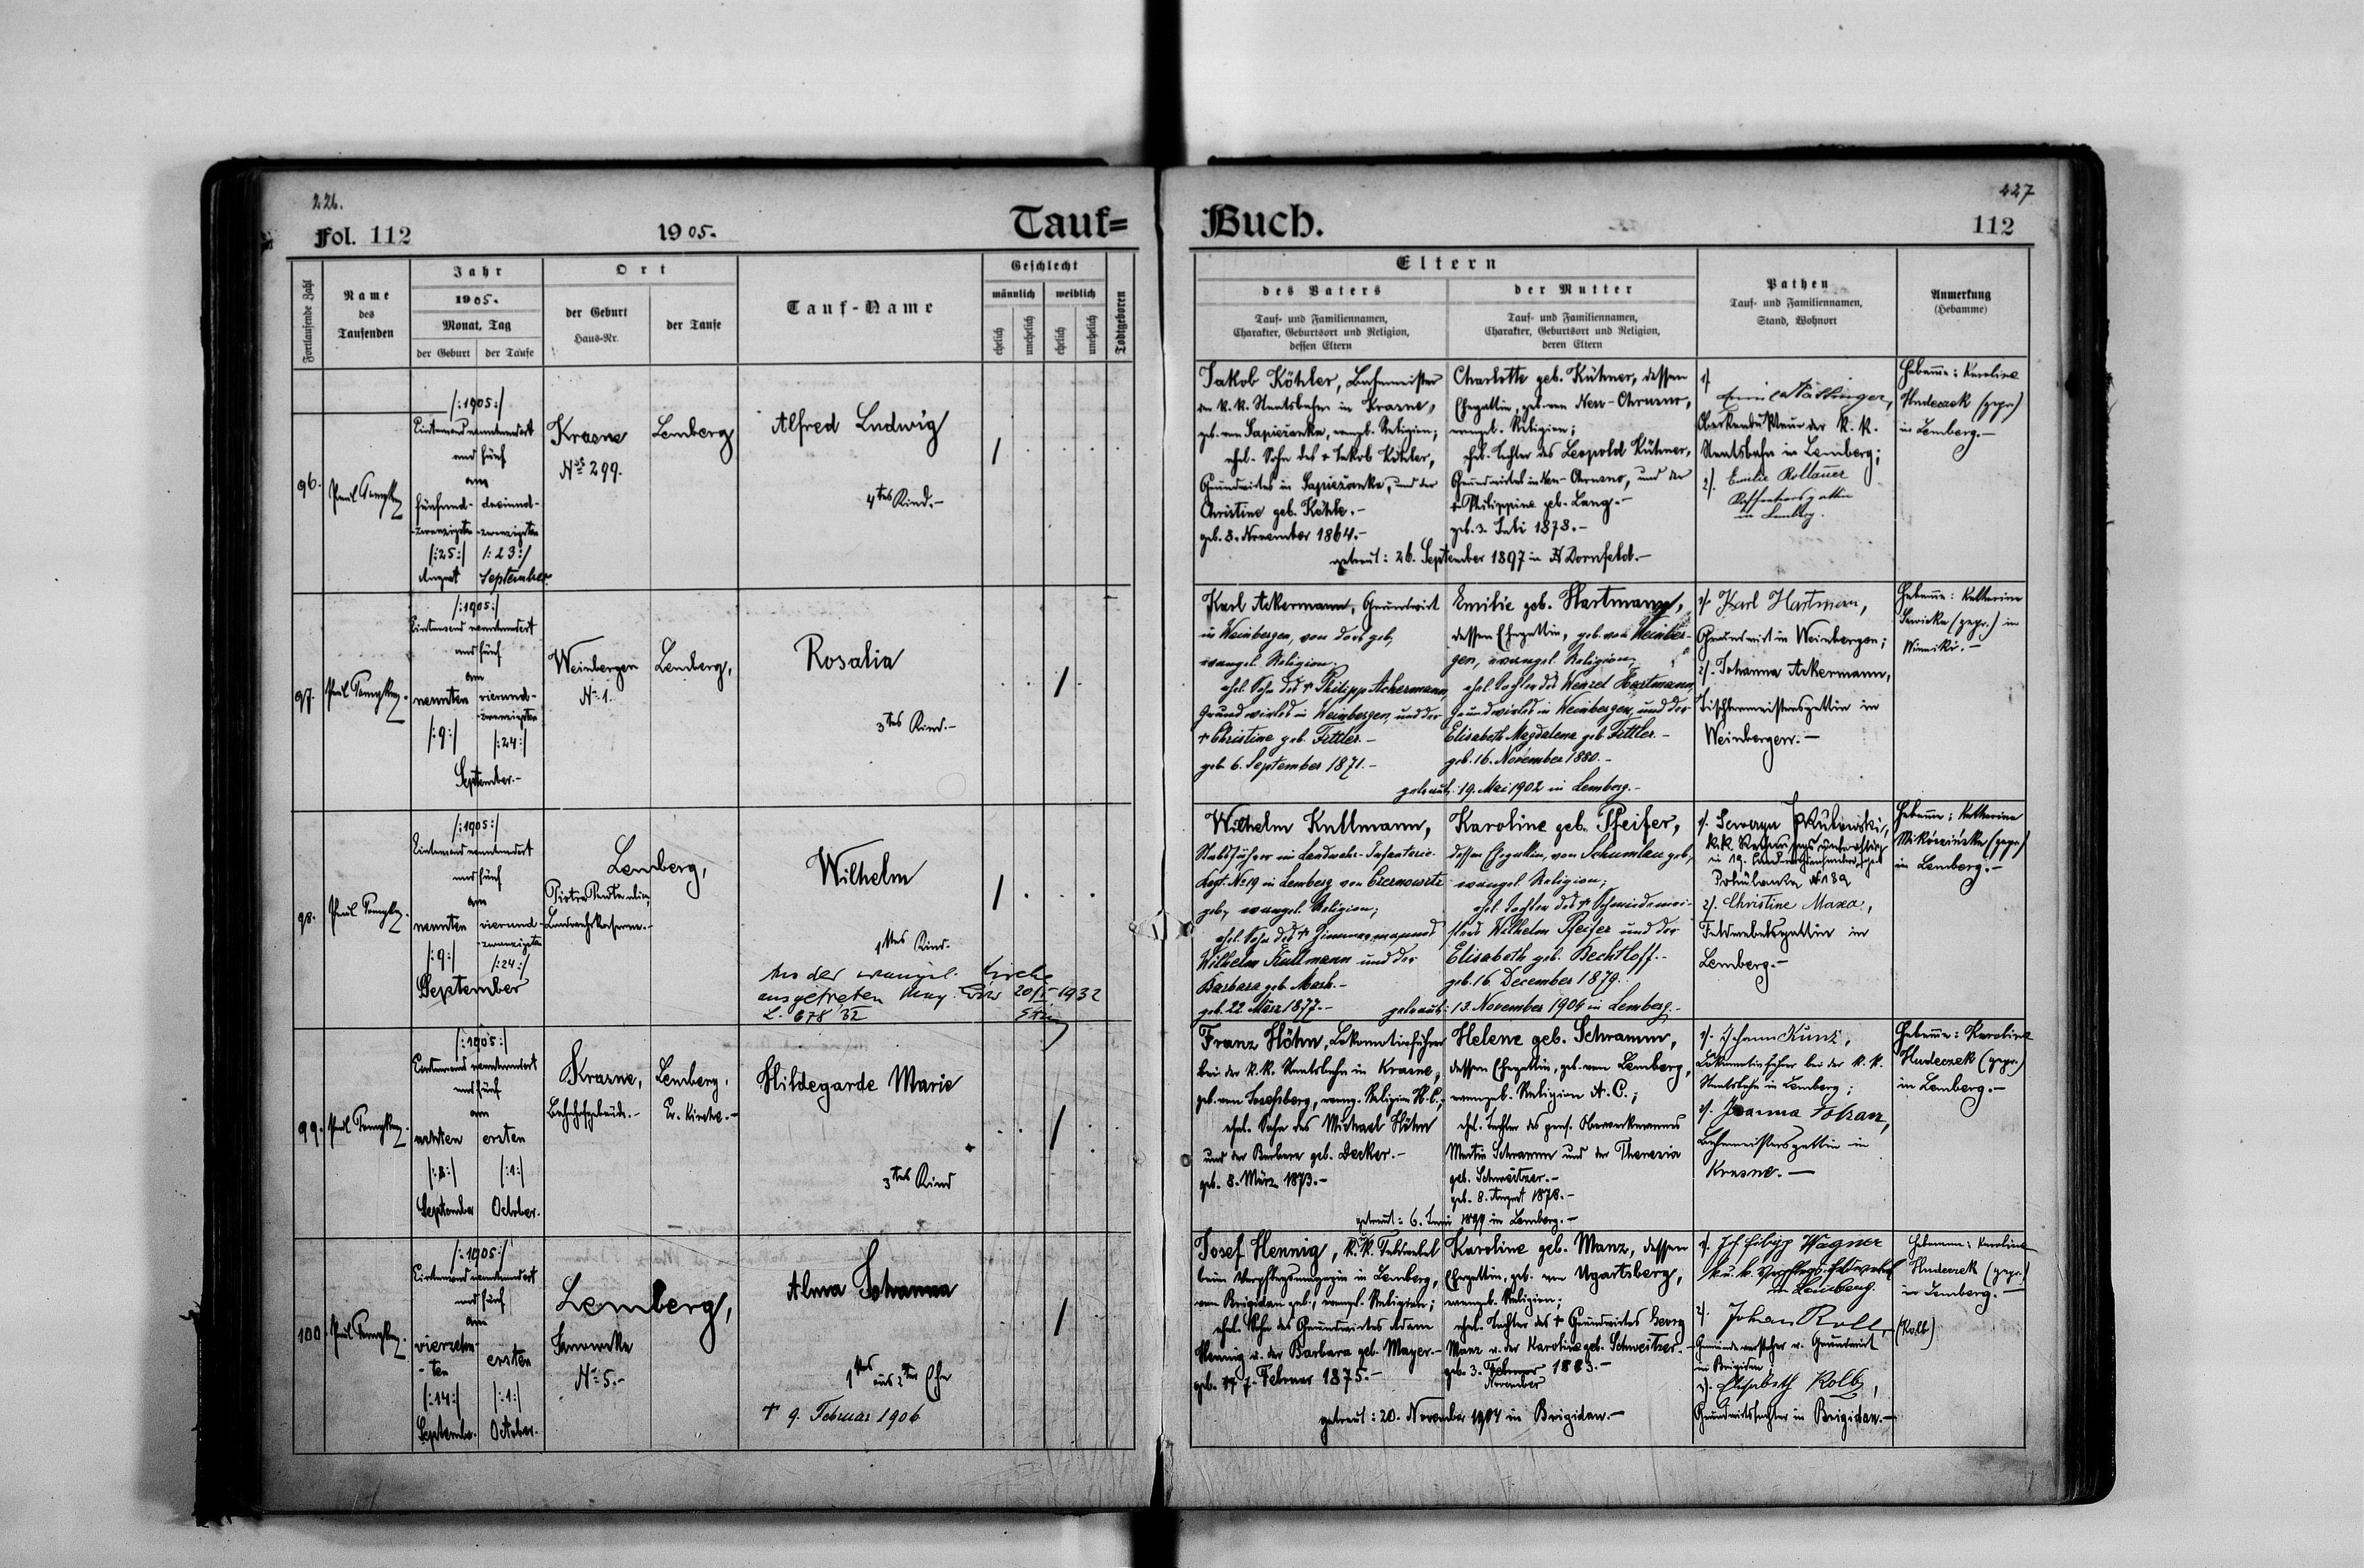 226.
Fol. 112
1905.
Tauf=
Fortlaufende Zahl
Name
des
Taufenden
Jahr
1905.
Monat, Tag
der Geburt
der Taufe
Ort
der Geburt
Haus-Nr.
der Taufe
Tauf-Name
Geschlecht
männlich
weiblich
ehelich
unehelich
ehelich
unehelich
Todtgeboren
96.
/:1905:/
Eintausend neunhundert
und fünf
am
fünfund- dreiund-
-zwanzigsten -zwanzigsten
/:25:/ /:23:/
August September
Krasne
No 299.
Lemberg
Alfred Ludwig
4tes Kind.-
97.
/:1905:/
Eintausend neunhundert
und fünf
am
neunten vierund-
-zwanzigsten
/:9:/ /:24:/
September.-
Weinbergen
No 1.
Lemberg,
Rosalia
3tes Kind.-
98.
/:1905:/
Eintausend neunhundert
und fünf
am
neunten vierund-
-zwanzigsten
/:9:/ /:24:/
September
Lemberg,
Landwehrkaserne.-
Wilhelm
1tes Kind.-
Aus der evangel. Kirche
ausgetreten 20/I 1932
L. 678/32
99.
/:1905:/
Eintausend neunhundert
und fünf
am
achten ersten
/:8:/ /:1:/
September October.
Krasne,
Bahnhofgebäude.-
Lemberg,
Ev. Kirche.-
Hildegarde Marie
3tes Kind
100.
/:1905:/
Eintausend neunhundert
und fünf
am
vierzehn-
-ten ersten
/:14:/ /:1:/
September. October.
Lemberg,
Janowska
No 5.-
Alma Johanna
1tes aus 2ter Ehe
† 9. Februar 1906
227
Buch.
112
Eltern
des Vaters
Tauf- und Familiennamen,
Charakter, Geburtsort und Religion,
dessen Eltern
der Mutter
Tauf- und Familiennamen,
Charakter, Geburtsort und Religion,
deren Eltern
Pathen
Tauf- und Familiennamen,
Stand, Wohnort
Anmerkung
(Hebamme)
Jakob Köhler, Bahnmeister
der k.k. Staatsbahn in Krasne,
geb. von Sapieżanka, evangel. Religion;
ehel. Sohn des † Jakob Köhler,
Grundwirtes in Sapieżanka, und der
Christine geb. Köhle.-
geb. 8. November 1864.-
Charlotte geb. Kühner, dessen
Ehegattin, geb. von Neu-Chrusno,
evangel. Religion;
ehel. Tochter des Leopold Kühner,
Grundwirtes in Neu-Chrusno, und der
† Philippine geb. Lang.-
geb. 3. Juli 1878.-
getraut: 26. September 1897 in Dornfeld.-
1).
Oberkondukteur der k.k.
Staatsbahn in Lemberg;
2). Emilie Rollauer
in Lemberg.
Hebamme: Karoline
Hudeczek (gepr.)
in Lemberg.-
Karl Ackermann, Grundwirt
in Weinbergen, von dort geb.,
evangel. Religion;
ehel. Sohn des † Philipp Ackermann,
Grundwirtes in Weinbergen, und der
† Christine geb. Fettler.-
geb. 6. September 1871.-
Emilie geb. Hartmann,
dessen Ehegattin, geb. von Weinber-
gen, evangel. Religion;
ehel. Tochter des Wenzel Hartmann,
Grundwirtes in Weinbergen, und der
Elisabeth Magdalena geb. Fettler.-
geb. 16. November 1880.-
getraut: 19. Mai 1902 in Lemberg.-
1). Karl Hartmann,
Grundwirt in Weinbergen;
2). Johanna Ackermann,
Tischlermeistersgattin in
Weinbergen.-
Hebamme: Katharina
(gepr.) in
Winniki.-
Wilhelm Kullmann,
Stabsführer im Landwehr-Infanterie-
Regt. No 19 in Lemberg von Czernowitz
geb., evangel. Religion;
ehel. Sohn des † Zimmermannes
Wilhelm Kullmann und der
Barbara geb. Mash.-
geb. 22 März 1877.-
Karoline geb. Pfeifer,
dessen Ehegattin, von Schumlau geb.,
evangel. Religion;
ehel. Tochter des † Schmiedemei-
sters Wilhelm Pfeifer und der
Elisabeth geb. Bechtloff.-
geb. 16. December 1879.-
getraut: 13. November 1904 in Lemberg.-
1). Seweryn
2). Christine Maxa,
Feldwebelsgattin in
Lemberg.-
Hebamme: Katharina
(gepr.)
in Lemberg.-
Franz Höhn, Lokomotivführer
bei der k.k. Staatsbahn in Krasne,
geb. von Josefsberg, evang. Religion H.C.;
ehel. Sohn des Michael Höhn
und der Barbara geb. Decker.-
geb. 8. März 1873.-
Helene geb. Schramm,
dessen Ehegattin, geb. von Lemberg,
evangel. Religion A.C.;
ehel. Tochter des pens. Oberwerkmannes
Martin Schramm und der Theresia
geb. Schweitzer.-
geb. 8. August 1878.-
getraut: 6. Juni 1899 in Lemberg.-
1). Johann Kunz,
Lokomotivführer bei der k.k.
Staatsbahn in Lemberg;
2). Joanna
Bahnmeistersgattin in
Krasne.-
Hebamme: Karoline
Hudeczek (gepr.)
in Lemberg.-
Josef Hennig, k.u.k. Feldwebel
beim Verpflegsmagazin in Lemberg,
von Brigidau geb., evangel. Religion;
ehel. Sohn des Grundwirtes Adam
Hennig u. der Barbara geb. Mayer.-
geb. 7. Februar 1875.-
Karoline geb. Manz, dessen
Ehegattin, geb. von Ugartsberg,
evangel. Religion;
ehel. Tochter des † Grundwirtes Georg
Manz u. der Karoline geb. Schweitzer.-
geb. 3. Februar 1883.-
November
getraut: 20. November 1904 in Brigidau.-
1). Joh. Filipp Wagner
k.u.k. Verpflegs-Feldwebel
in Lemberg.
2). Johan Roll,
Gemeindevorsteher u. Grundwirt
in Brigidau
3). Elisabeth Kolb,
Grundwirtstochter in Brigidau.-
Hebamme: Karoline
Hudeczek (gepr.)
in Lemberg.-
(Kolb)